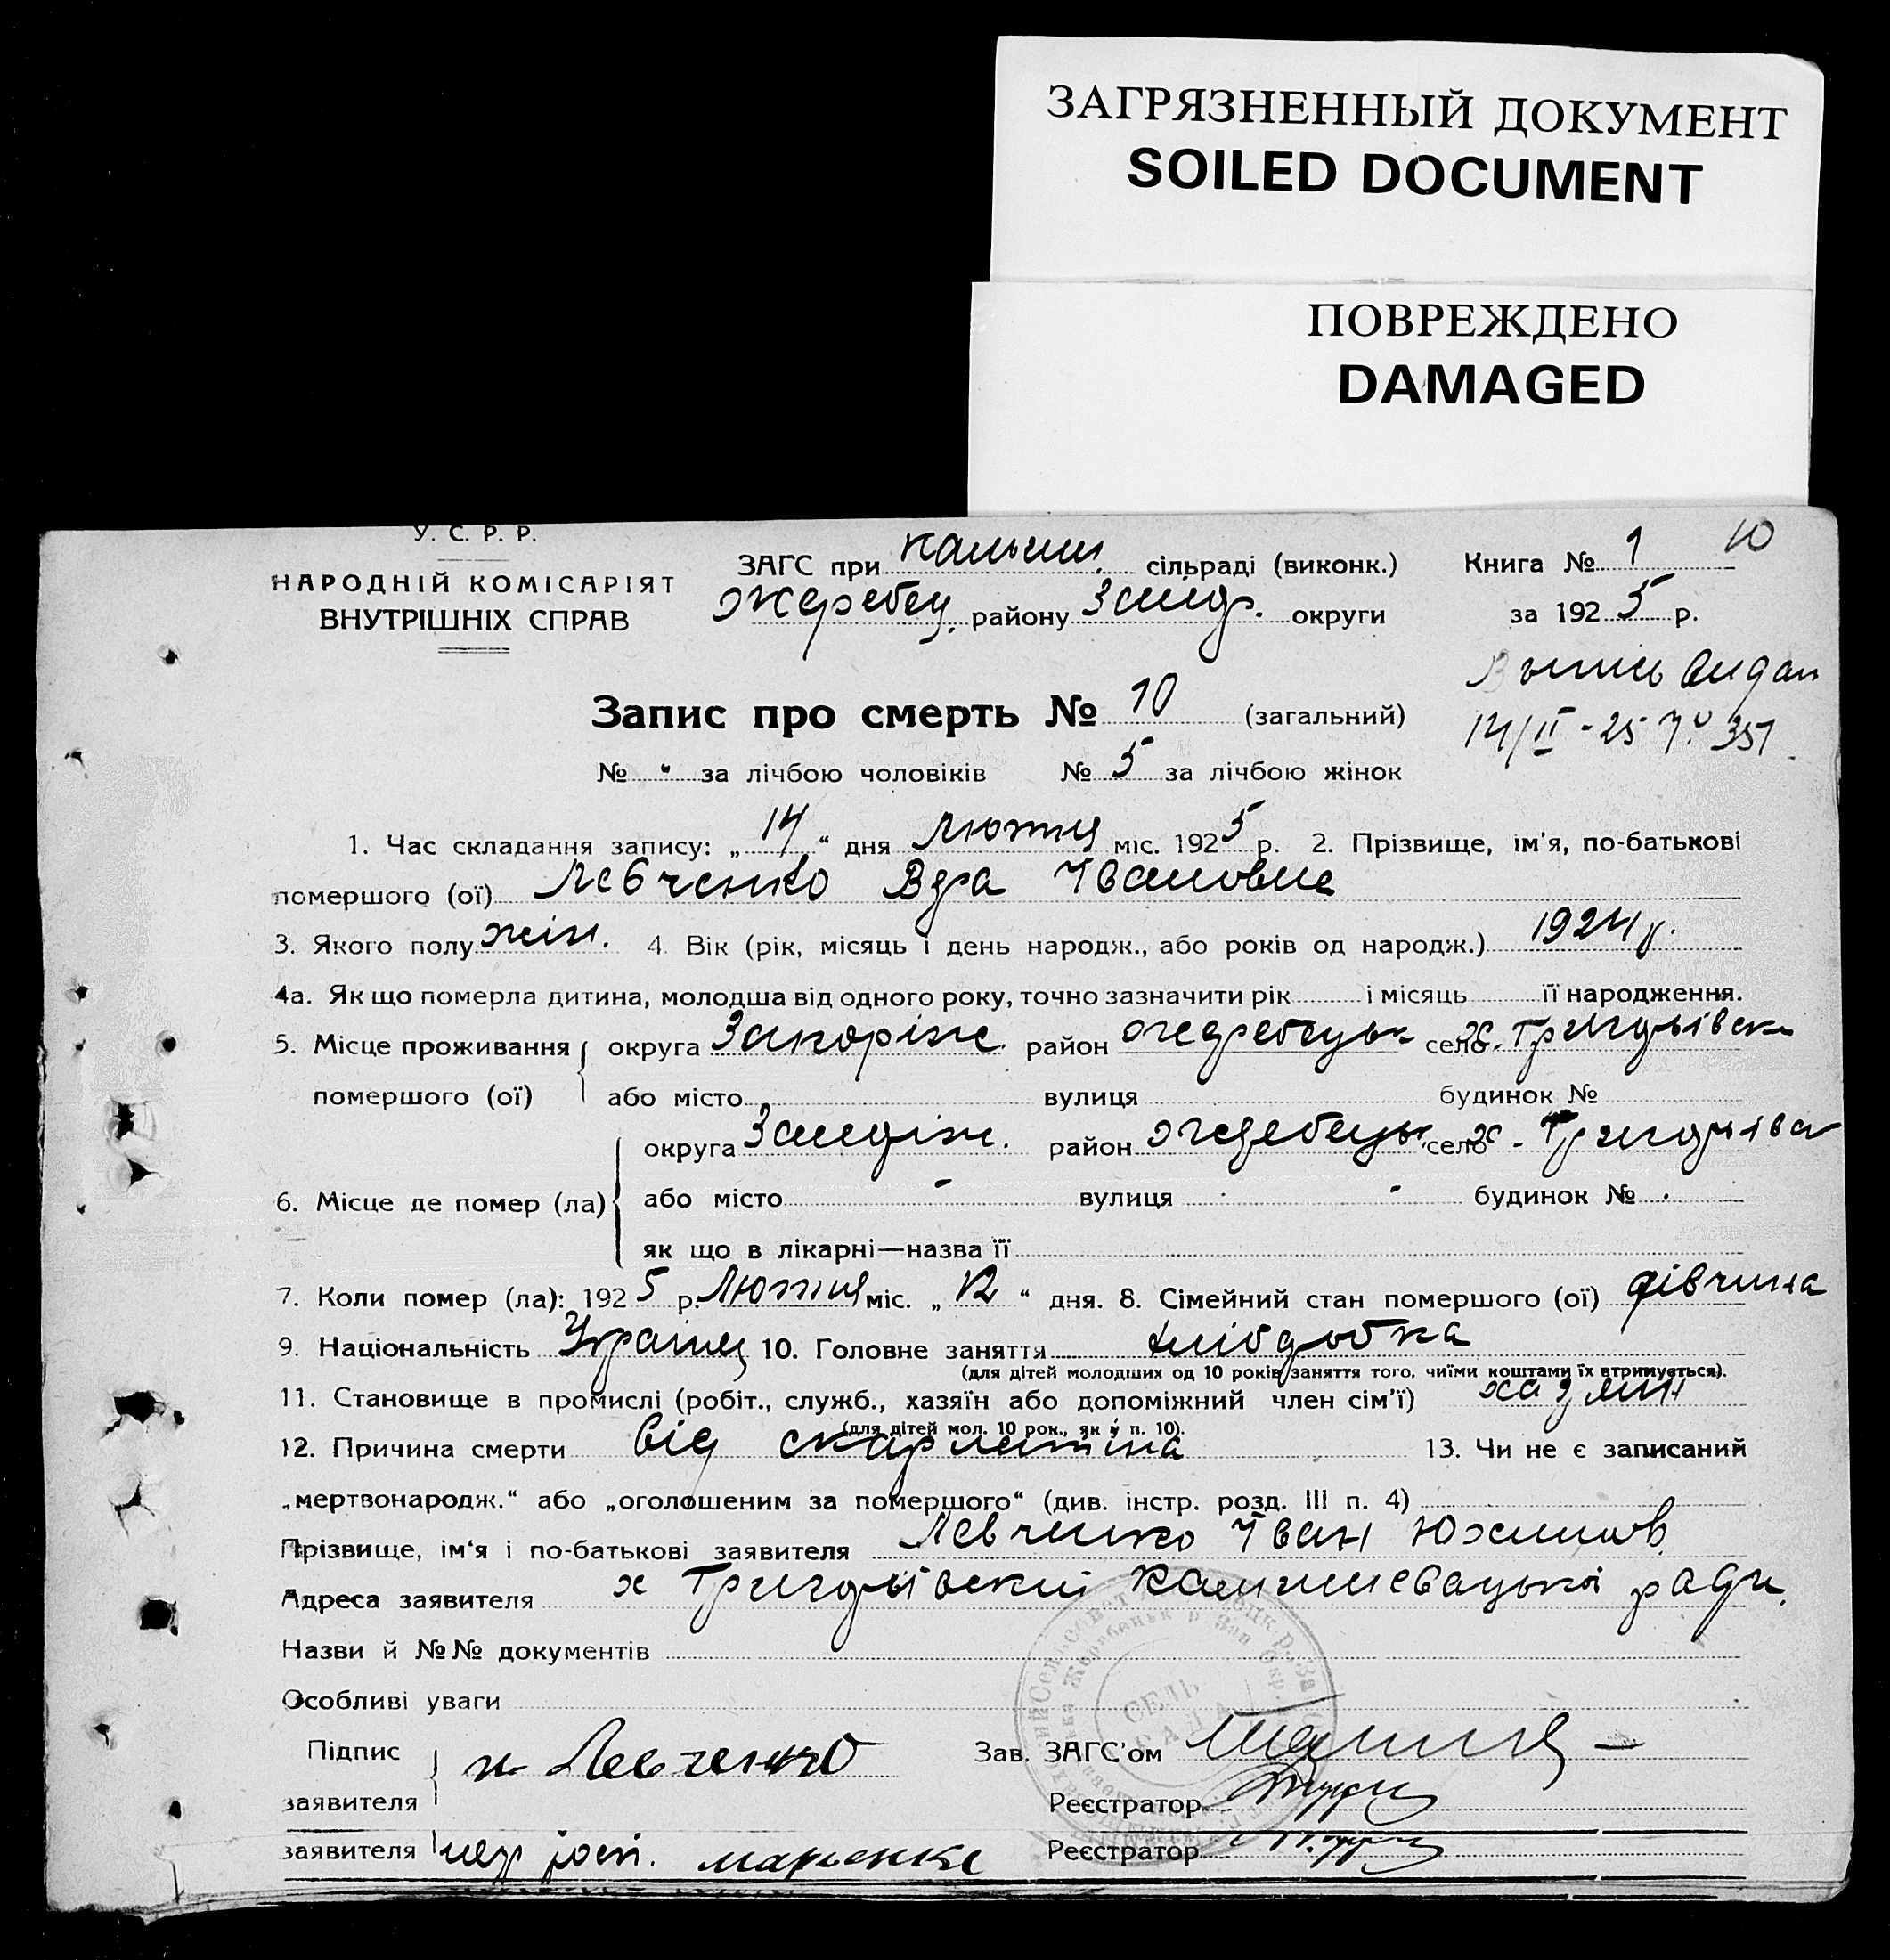 ЗАГРЯЗНЕННЫЙ ДОКУМЕНТ
SOILED DOCUMENT
ПОВРЕЖДЕНО
DAMAGED
У. С. Р. Р.
НАРОДНІЙ КОМІСАРІЯТ
ВНУТРІШНІХ СПРАВ
ЗАГС при сільраді (виконк.)
Жеребец. району округи
Книга № 1 10
за 1925 р.
14/II-25 351
Запис про смерть № 10 (загальний)
№ " за лічбою чоловіків № 5 за лічбою жінок
1. Час складання запису: „14“ дня Лютня міс. 1925 р. 2. Прізвище, ім'я, по-батькові
помершого (ої) Левченко Вера Івановна
3. Якого полу жін. 4. Вік (рік, місяць і день народж., або років од народж.) 1924 р.
4а. Як що померла дитина, молодша від одного року, точно зазначити рік і місяць її народження.
5. Місце проживання округа Запоріж. район Жеребецьк село х.
помершого (ої) або місто вулиця будинок №
округа Запоріж. район Жеребецьк село х -
6. Місце де помер (ла) або місто - вулиця - будинок №
як що в лікарні—назва її
7. Коли помер (ла): 1925 р. Лютня міс. „12“ дня. 8. Сімейний стан помершого (ої) дівчина
9. Національність Украінец 10. Головне заняття хліборобка
(для дітей молодших од 10 років заняття того, чиїми коштами їх втримується).
11. Становище в промислі (робіт., служб., хазяїн або допоміжний член сім'ї) хазяин
(для дітей мол. 10 рок., як у п. 10).
12. Причина смерти від скарлатіна 13. Чи не є записаний
„мертвонародж.“ або „оголошеним за помершого“ (див. інстр. розд. III п. 4)
Прізвище, ім'я і по-батькові заявителя Левченко Іван Юхимов.
Адреса заявителя х ради.
Назви й №№ документів
Особливі уваги
Підпис
заявителя Левченко
Зав. ЗАГС'ом
Реєстратор
заявителя
Реєстратор
СЕЛЬ
РАДА